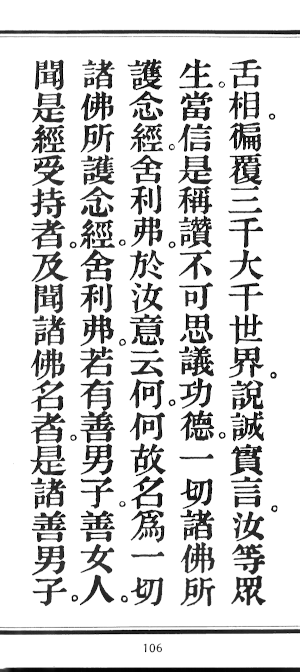 舌相。徧覆三千大千世界。說誠實言。汝等眾
生。當信是稱讚不可思議功德。一切諸佛所
護念經。舍利弗。於汝意云何。何故名為一切
諸佛所護念經。舍利弗。若有善男子。善女人。
聞是經受持者。及聞諸佛名者。是諸善男子。
106